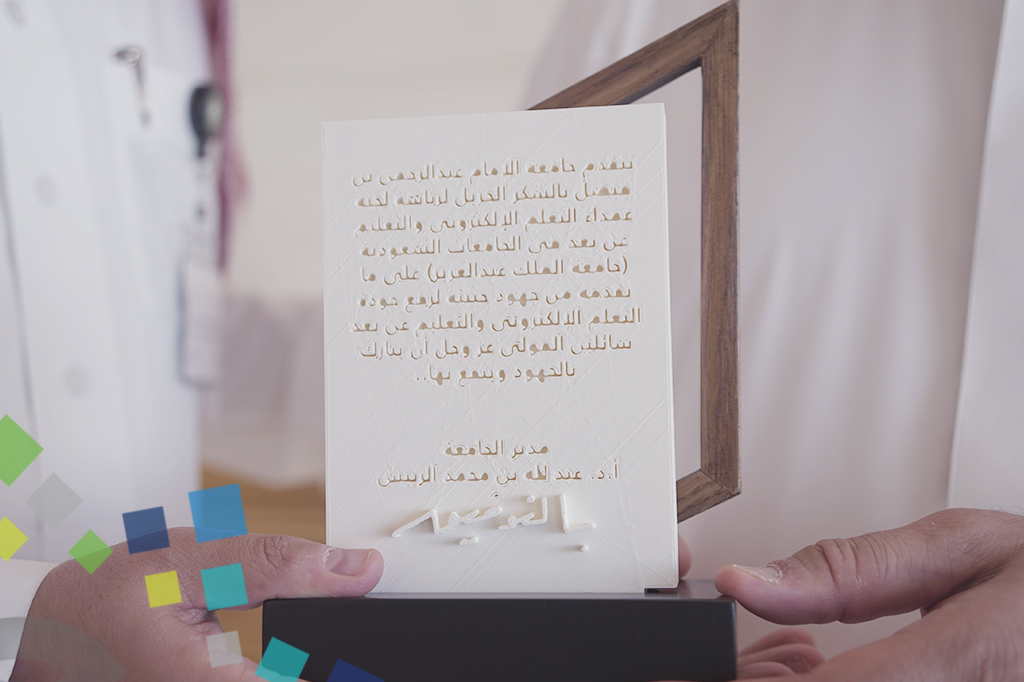 تتقدم جامعة الإمام عبدالرحمن بن
فيصل بالشكر الجزيل لرئاسة لجنة
عمداء التعلم الإلكتروني والتعليم
عن بعد في الجامعات السعودية
(جامعة الملك عبدالعزيز) على ما
تقدمه من جهود حثيثة لرفع جودة
التعلم الإلكتروني والتعليم عن بعد
سائلين المولى عز وجل أن يبارك
بالجهود وينفع بها..
مدير الجامعة
أ.د. عبدالله بن محمد الربيش
بالتوفيق